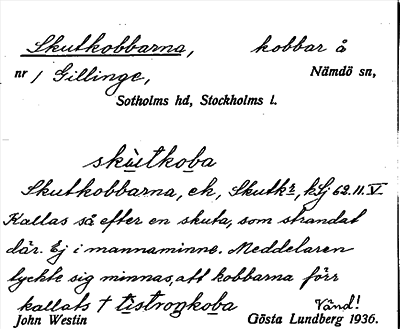 Skutkobbarna, kobbar å
nr 1 Gillinge, Nämdö sn,
Sotholms hd, Stockholms l.
skùtkoba
Skutkobbarna, ek, Skutk:r, kSj 62.II.V.
Kallas så efter en skuta, som strandat
där. Ej i mannaminne. Meddelaren
tyckte sig minnas, att kobbarna förr
kallats † tistronkoba Vänd!
John Westin Gösta Lundberg 1936.